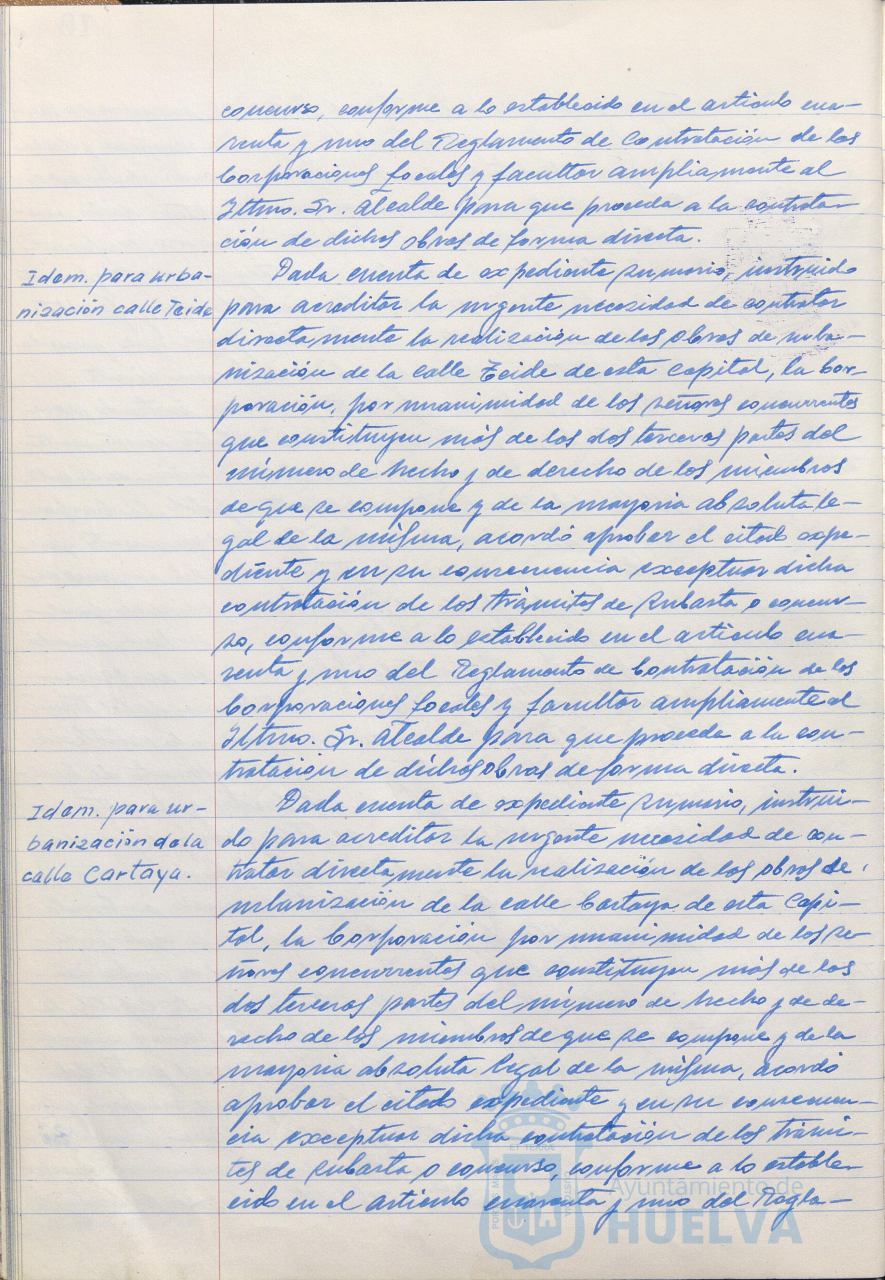 concurso, conforme a lo establecido en el artículo cua-
renta y uno del Reglamento de Contratación de las
Corporaciones Locales y facultar ampliamente al
Iltmo. Sr. Alcalde para que proceda a la contrata-
ción de dichas obras de forma directa.
Idem. para urba-
nización calle Teide
Dada cuenta de expediente sumario, instruido
para acreditar la urgente necesidad de contratar
directamente la realización de las obras de urba-
nización de la calle Teide de esta Capital, la Cor-
poración, por unanimidad de los señores concurrentes
que constituyen más de las dos terceras partes del
número de hecho y de derecho de los miembros
de que se compone y de la mayoría absoluta le-
gal de la misma, acordó aprobar el citado expe-
diente y en su consecuencia exceptuar dicha
contratación de los trámites de subasta o concur-
so, conforme a lo establecido en el artículo cua-
renta y uno del Reglamento de Contratación de las
Corporaciones Locales y facultar ampliamente al
Iltmo. Sr. Alcalde para que proceda a la con-
tratación de dichas obras de forma directa.
Idem. para ur-
banización de la
calle Cartaya.
Dada cuenta de expediente sumario, instrui-
do para acreditar la urgente necesidad de con-
tratar directamente la realización de las obras de
urbanización de la calle Cartaya de esta Capi-
tal, la Corporación por unanimidad de los se-
ñores concurrentes que constituyen más de las
dos terceras partes del número de hecho y de de-
recho de los miembros de que se compone y de la
mayoría absoluta legal de la misma, acordó
aprobar el citado expediente y en su consecuen-
cia exceptuar dicha contratación de los trámi-
tes de subasta o concurso, conforme a lo estable-
cido en el artículo cuarenta y uno del Regla-
Ayuntamiento de
HUELVA